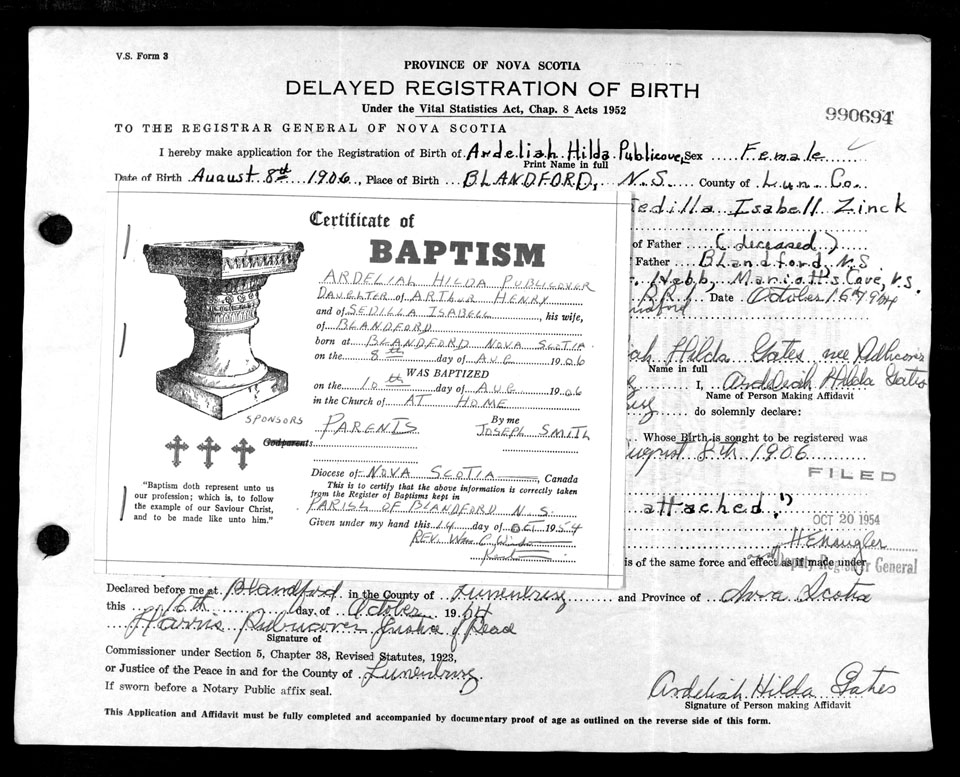 V.S. Form 3
PROVINCE OF NOVA SCOTIA
DELAYED REGISTRATION OF BIRTH
Under the Vital Statistics Act, Chap. 8 Acts 1952
990694
TO THE REGISTRAR GENERAL OF NOVA SCOTIA
I hereby make application for the Registration of Birth of Ardeliah Hilda Publicover, Sex Female
Print Name in full
Date of Birth August 8th 1906, Place of Birth BLANDFORD, N.S. County of Lun. Co.
Sedilla Isabell Zinck
of Father (deceased)
Father Blandford, N.S.
Webb, Mariott's Cove, N.S.
R.R.1 Date October 16th
Hilda Gates nee
Name in full
I, Ardeliah Hilda Gates
Name of Person Making Affidavit
do solemnly declare:
Whose Birth is sought to be registered was
August 8th, 1906
FILED
attached."
OCT 20 1954
Deputy Registrar General
is of the same force and effect as if made under
Certificate of
BAPTISM
ARDELIAH HILDA PUBLICOVER
DAUGHTER of ARTHUR HENRY
and of SEDILLA ISABELL, his wife,
of BLANDFORD
born at BLANDFORD NOVA SCOTIA
on the 8th day of AUG 1906
WAS BAPTIZED
on the 10th day of AUG 1906
in the Church of AT HOME
SPONSORS
Godparents PARENTS
By me
JOSEPH SMITH
Diocese of NOVA SCOTIA, Canada
This is to certify that the above information is correctly taken
from the Register of Baptisms kept in
PARISH OF BLANDFORD N.S.
Given under my hand this 14 day of OCT 1954
REV. Wm C.
"Baptism doth represent unto us
our profession; which is, to follow
the example of our Saviour Christ,
and to be made like unto him."
Declared before me at Blandford in the County of Lunenburg and Province of Nova Scotia
this 16th day of October 1954
Harris Publicover
Signature of
Commissioner under Section 5, Chapter 38, Revised Statutes, 1923,
or Justice of the Peace in and for the County of Lunenburg.
If sworn before a Notary Public affix seal.
Ardeliah Hilda Gates
Signature of Person making Affidavit
This Application and Affidavit must be fully completed and accompanied by documentary proof of age as outlined on the reverse side of this form.